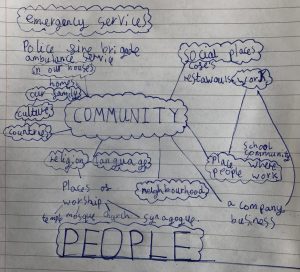 emergency services
Police fire brigade
ambulance service
(in our house)
homes
our family
culture
countries
COMMUNITY
social places
cafes
restaurants
work
school
community
place where
people work
religion
language
Places of
worship
temple mosque church synagogue
neighbourhood
a company
business
PEOPLE